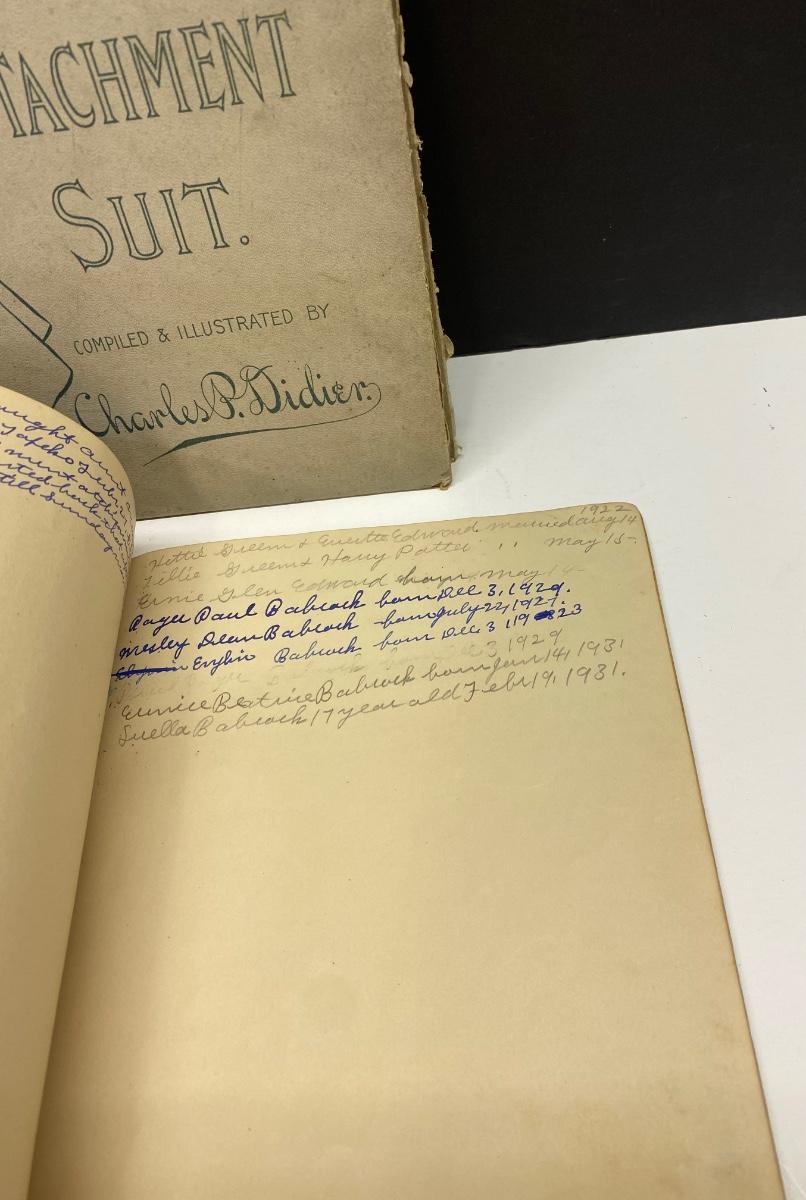 TACHMENT
SUIT.
COMPILED & ILLUSTRATED BY
Charles P. Didier.
1922
Hettie Green & Edward married Aug 14
Tillie Green & Harry Potter " May 15-
Ernie Glen Edward born May 14-
Roger Paul Babcock born Dec 3, 1929.
Wesley Dean Babcock born July 22, 1927.
Babcock born Dec 3, 1923
3 1929
Eunice Beatrice Babcock born Jan 14, 1931
Luella Babcock 17 year old Febr 19, 1931.
aunt
till Sunday